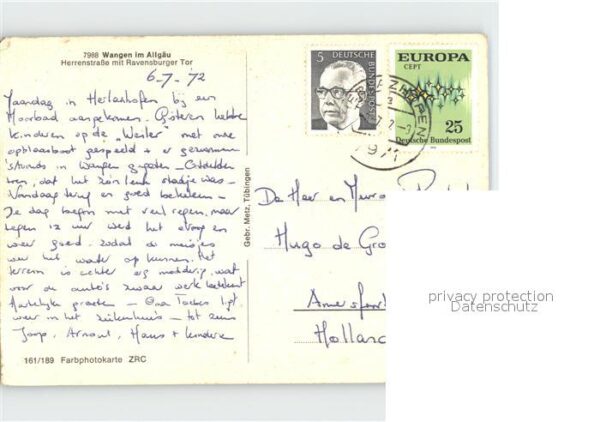 7988 Wangen im Allgäu
Herrenstraße mit Ravensburger Tor
6-7-'72
Maandag in Herlazhofen bij een
Moorbad aangekomen. Gisteren hebben
kinderen op de "Weiler" met onze
opblaasboot gespeeld + er
in Wangen
dat het 'n leuk stadje was -
Vandaag terug en goed bekeken -
De dag begon met veel regen, maar
tegen 12 uur werd het droog en
weer goed. zodat de meisjes
weer het water op kunnen. Het
terrein is echter erg modderig, wat
voor de auto's zwaar werk betekent
Hartelijke groeten - Oma ligt
weer in het ziekenhuis - tot ziens
Joop, Arnout, Hans + kinderen
161/189 Farbphotokarte ZRC
Gebr. Metz, Tübingen
5
DEUTSCHE BUNDESPOST
EUROPA
CEPT
25
Deutsche Bundespost
7971
De Heer en Mevrouw
Hugo de Gro
Amersfoort
Holland
privacy protection
Datenschutz